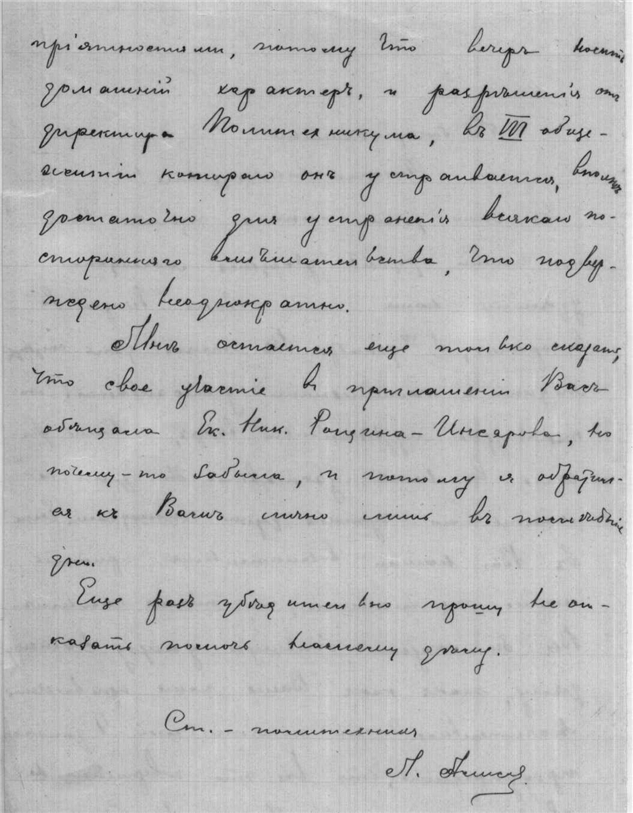 пріятностями, потому что вечеръ носитъ
домашній характеръ, и разрѣшенія отъ
директора Политехникума, въ III обще-
житіи котораго онъ устраивается, вполнѣ
достаточно для устраненія всякаго по-
сторонняго вмѣшательства, что подвер-
ждено неоднократно.
Мнѣ остается еще только сказать,
что свое участіе въ приглашеніи Васъ
обѣщала Ек. Ник. Рощина-Инсарова, но
почему-то забыла, и потому я обратил-
ся къ Вамъ лично лишь въ послѣдніе
дни.
Еще разъ убѣдительно прошу не от-
казать помочь нашему дѣлу.
Ст. - политехникъ